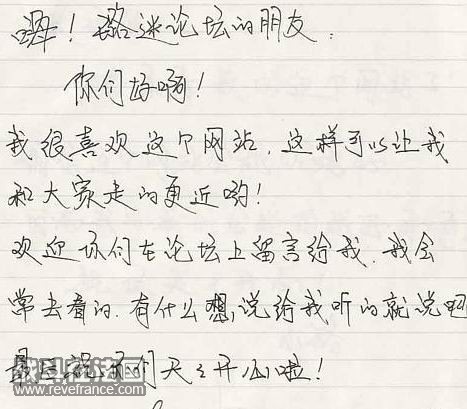 嗨！璐迷论坛的朋友：
你们好啊！
我很喜欢这个网站，这样可以让我
和大家走的更近哟！
欢迎你们在论坛上留言给我，我会
常去看的，有什么想说给我听的就说吧
最后祝你们天天开心啦！
战斗在法国
www.revefrance.com